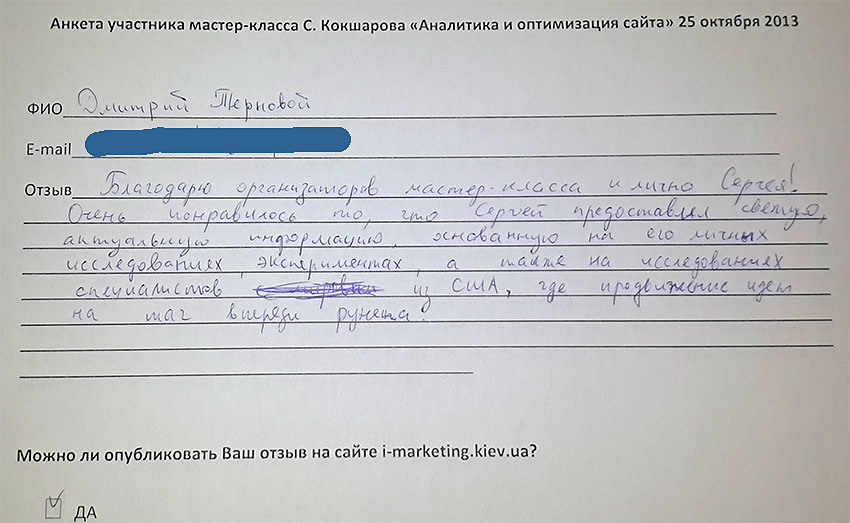 Анкета участника мастер-класса С. Кокшарова «Аналитика и оптимизация сайта» 25 октября 2013
ФИО Дмитрий Терновой
E-mail
Отзыв Благодарю организаторов мастер-класса и лично Сергея!
Очень понравилось то, что Сергей предоставлял свежую,
актуальную информацию, основанную на его личных
исследованиях, экспериментах, а также на исследованиях
специалистов из США, где продвижение идет
на шаг впереди рунета!
Можно ли опубликовать Ваш отзыв на сайте i-marketing.kiev.ua?
ДА